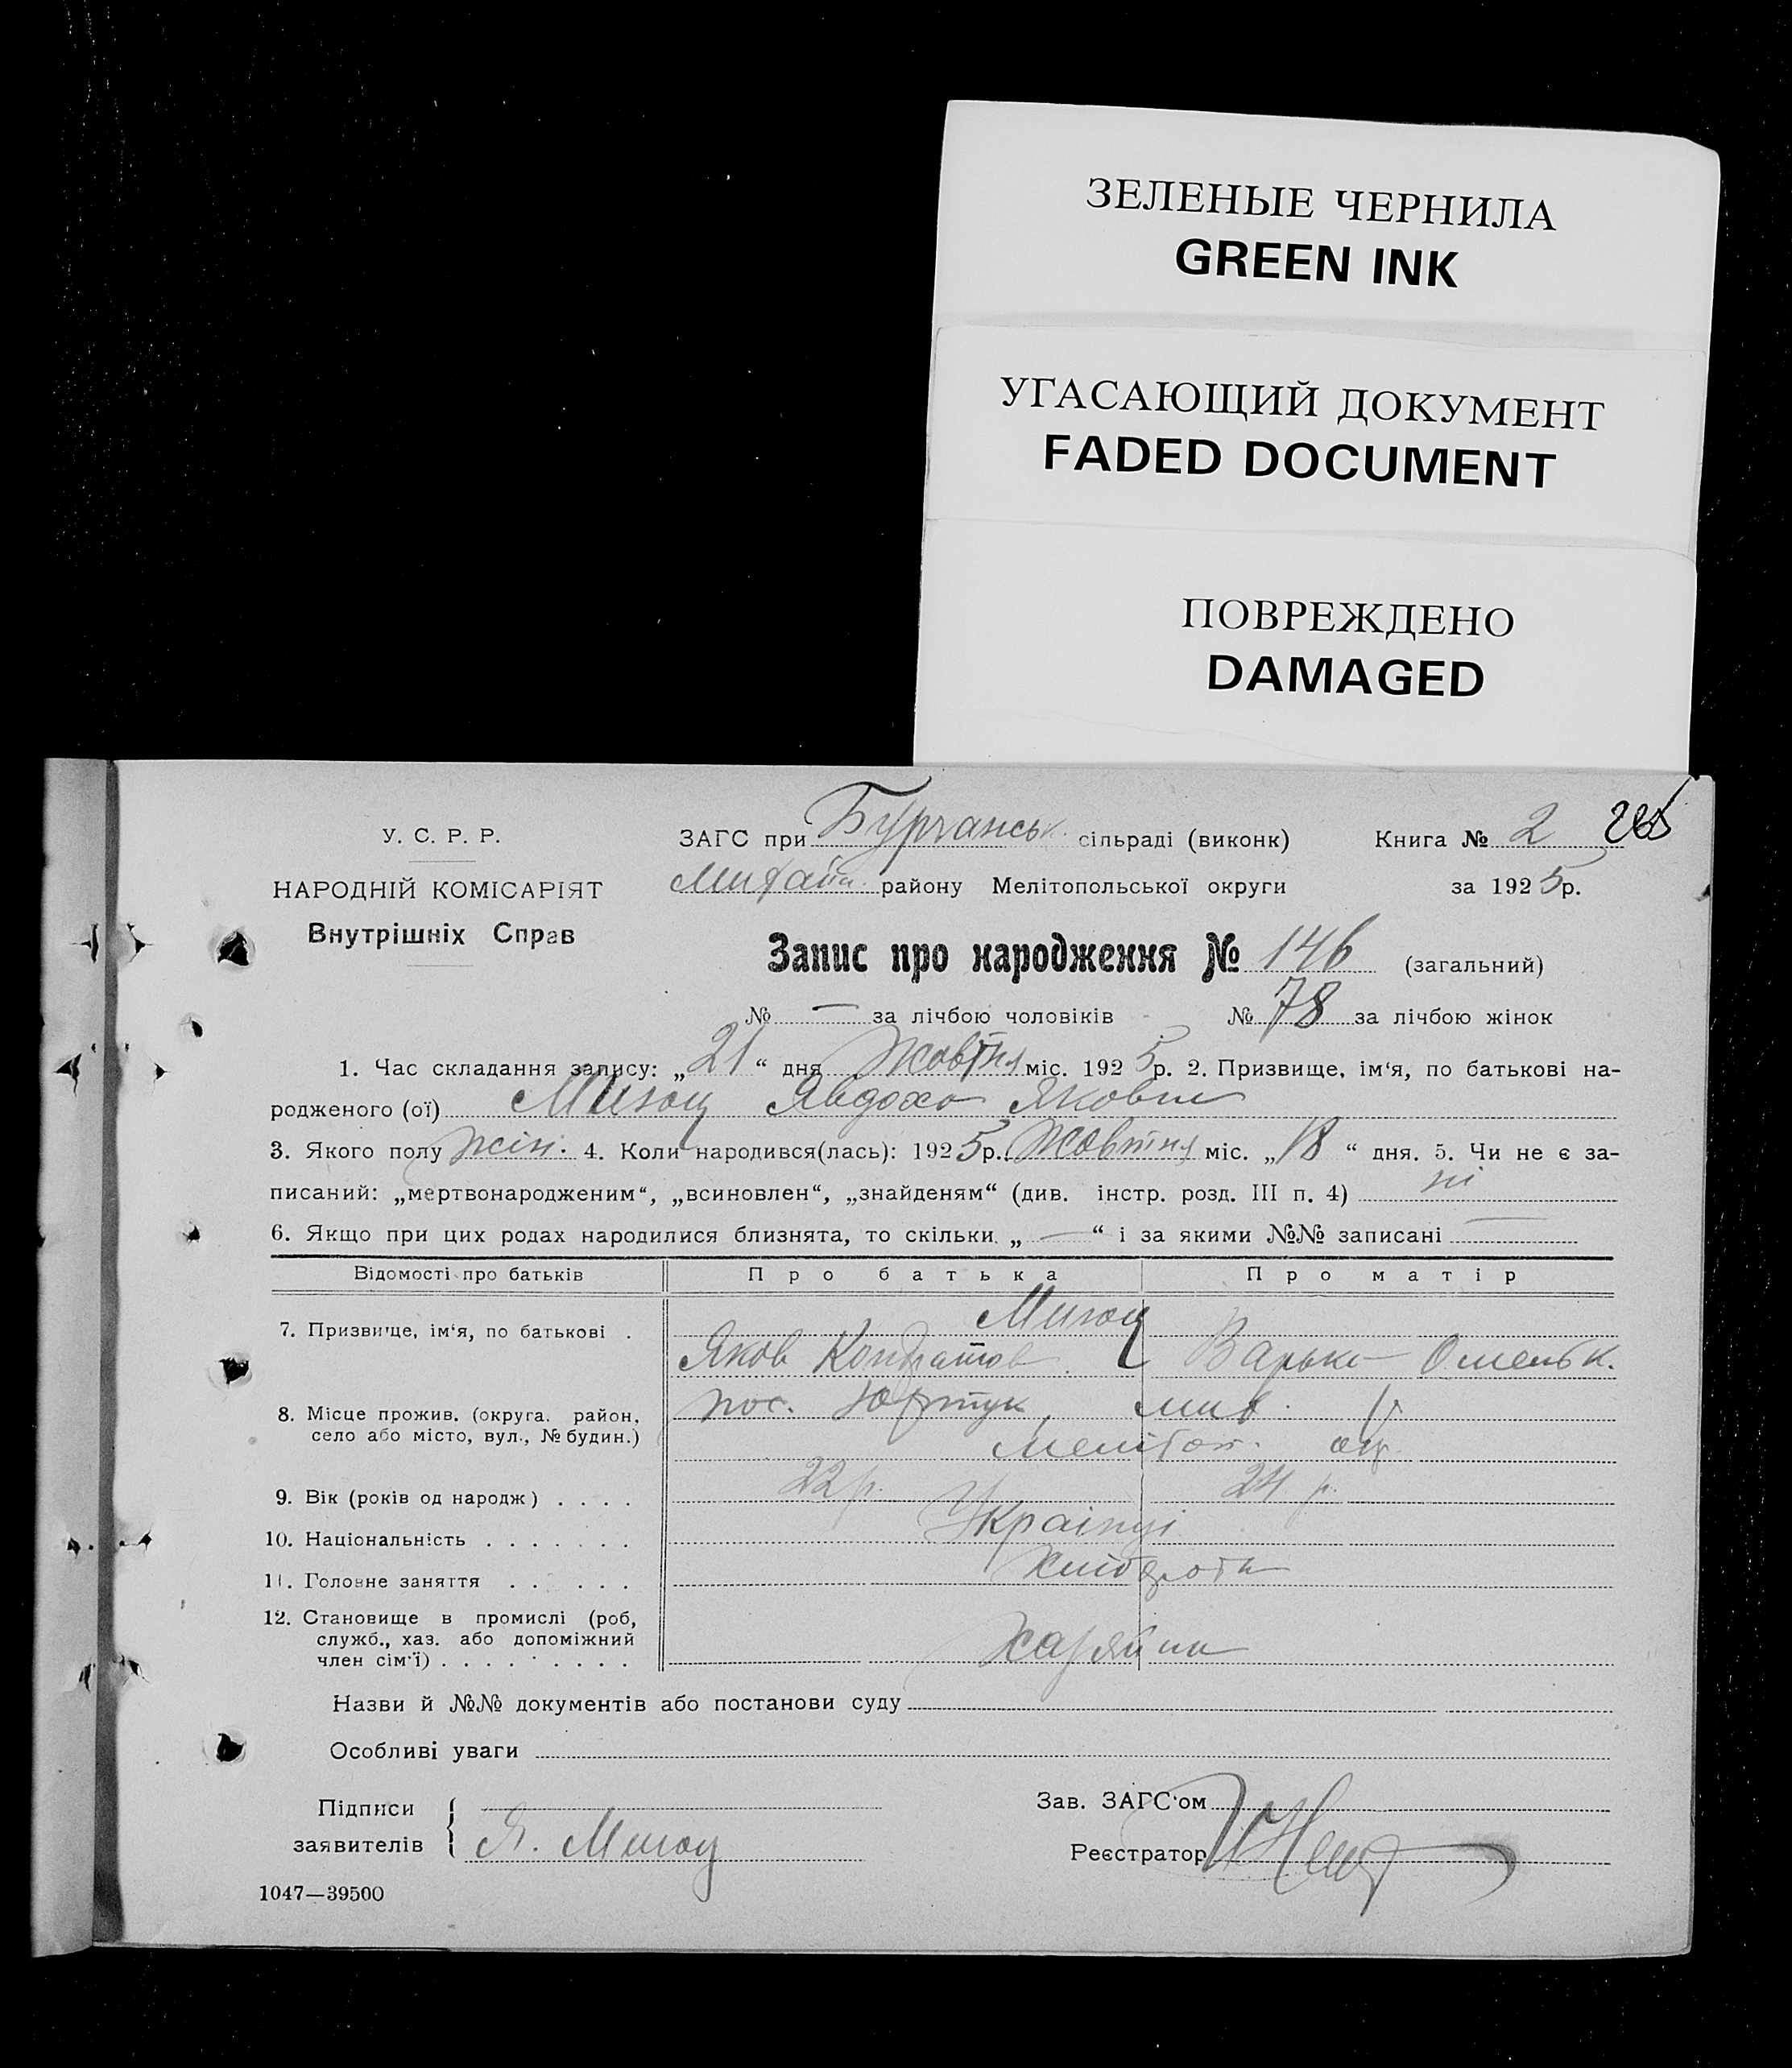 ЗЕЛЕНЫЕ ЧЕРНИЛА
GREEN INK
УГАСАЮЩИЙ ДОКУМЕНТ
FADED DOCUMENT
ПОВРЕЖДЕНО
DAMAGED
У. С. Р. Р.
НАРОДНІЙ КОМІСАРІЯТ
Внутрішніх Справ
ЗАГС при Бурчанськ. сільраді (виконк) Книга № 2
району Мелітопольської округи за 1925р.
Запис про народження № 146 (загальний)
№ — за лічбою чоловіків № 78 за лічбою жінок
1. Час складання запису: „21“ дня Жовтня міс. 1925р. 2. Призвище, ім‘я, по батькові на-
родженого (ої) Явдоха Яковл
3. Якого полу жін. 4. Коли народився(лась): 1925р. Жовтня міс. „18“ дня. 5. Чи не є за-
писаний: „мертвонародженим“, „всиновлен“, „знайденям“ (див. інстр. розд. III п. 4) ні
6. Якщо при цих родах народилися близнята, то скільки „—“ і за якими №№ записані —
Відомості про батьків Про батька Про матір
7. Призвище, ім‘я, по батькові .
Яков Кондратов Варька Омельк.
8. Місце прожив. (округа, район, село або місто, вул., № будин.) пос.
Меліто​п. окр.
9. Вік (років од народж) . . . . 22 р. 24 р.
10. Національність . . . . . . . Українці
11. Головне заняття . . . . . . Хлібороби
12. Становище в промислі (роб,
служб., хаз. або допоміжний
член сім‘ї) . . . . . . . . . Хазяїни
Назви й №№ документів або постанови суду
Особливі уваги
Підписи Зав. ЗАГС‘ом
заявителів Я. Реєстратор
1047—39500